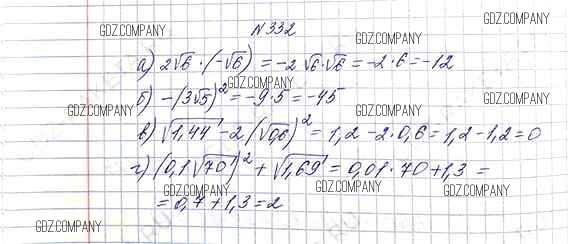 N 332
GDZ.COMPANY GDZ.COMPANY GDZ.COMPANY
а) 2√6 · (-√6) = -2√6·√6 = -2·6 = -12
GDZ.COMPANY
б) -(3√5)² = -9·5 = -45
GDZ.COMPANY GDZ.COMPANY GDZ.COMPANY
в) √1,44 - 2(√0,6)² = 1,2 - 2·0,6 = 1,2 - 1,2 = 0
г) (0,1√70)² + √1,69 = 0,01·70 + 1,3 =
GDZ.COMPANY GDZ.COMPANY GDZ.COMPANY
= 0,7 + 1,3 = 2
GDZ.COMPANY